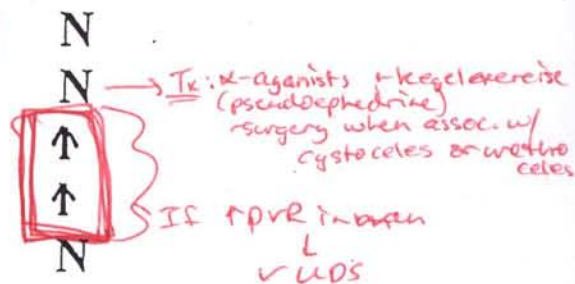 N
N → Tx: α-agonists + kegel exercise
(pseudoephedrine)
surgery when assoc. w/
cystoceles or urethro
celes
↑
↑
If ↑PVR in
↓
✓ UDS
N